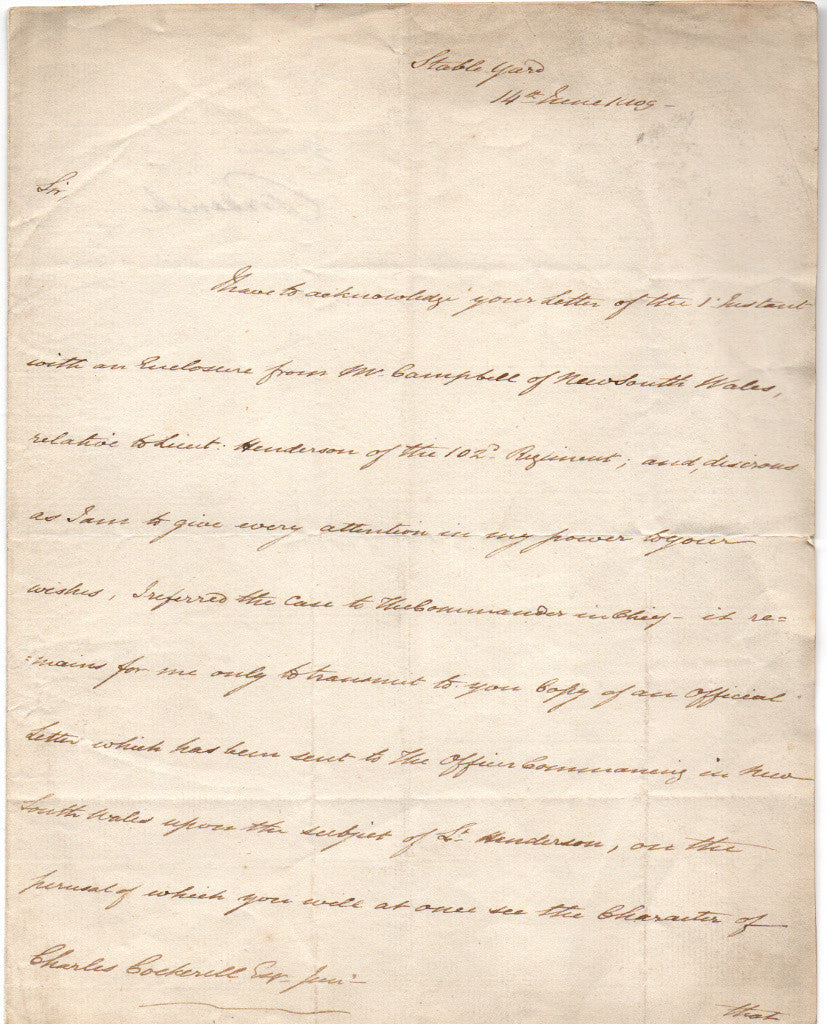 Stable Yard
14th June 1809 -
Sir,
I have to acknowledge your Letter of the 1st Instant
with an Enclosure from Mr. Campbell of New South Wales,
relative to Lieut: Henderson of the 102d. Regiment; and, desirous
as I am to give every attention in my power to your
wishes, I referred the Case to The Commander in Chief - it re=
=mains for me only to transmit to you Copy of an Official
Letter which has been sent to The Officer Commanding in New
South Wales upon the subject of Lt. Henderson, on the
perusal of which you will at once see the Character of
Charles Cockerill Esqr. Junr -
that